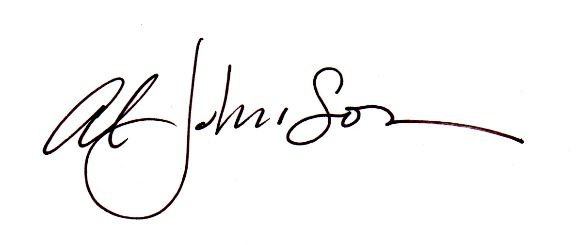 Al Johnson